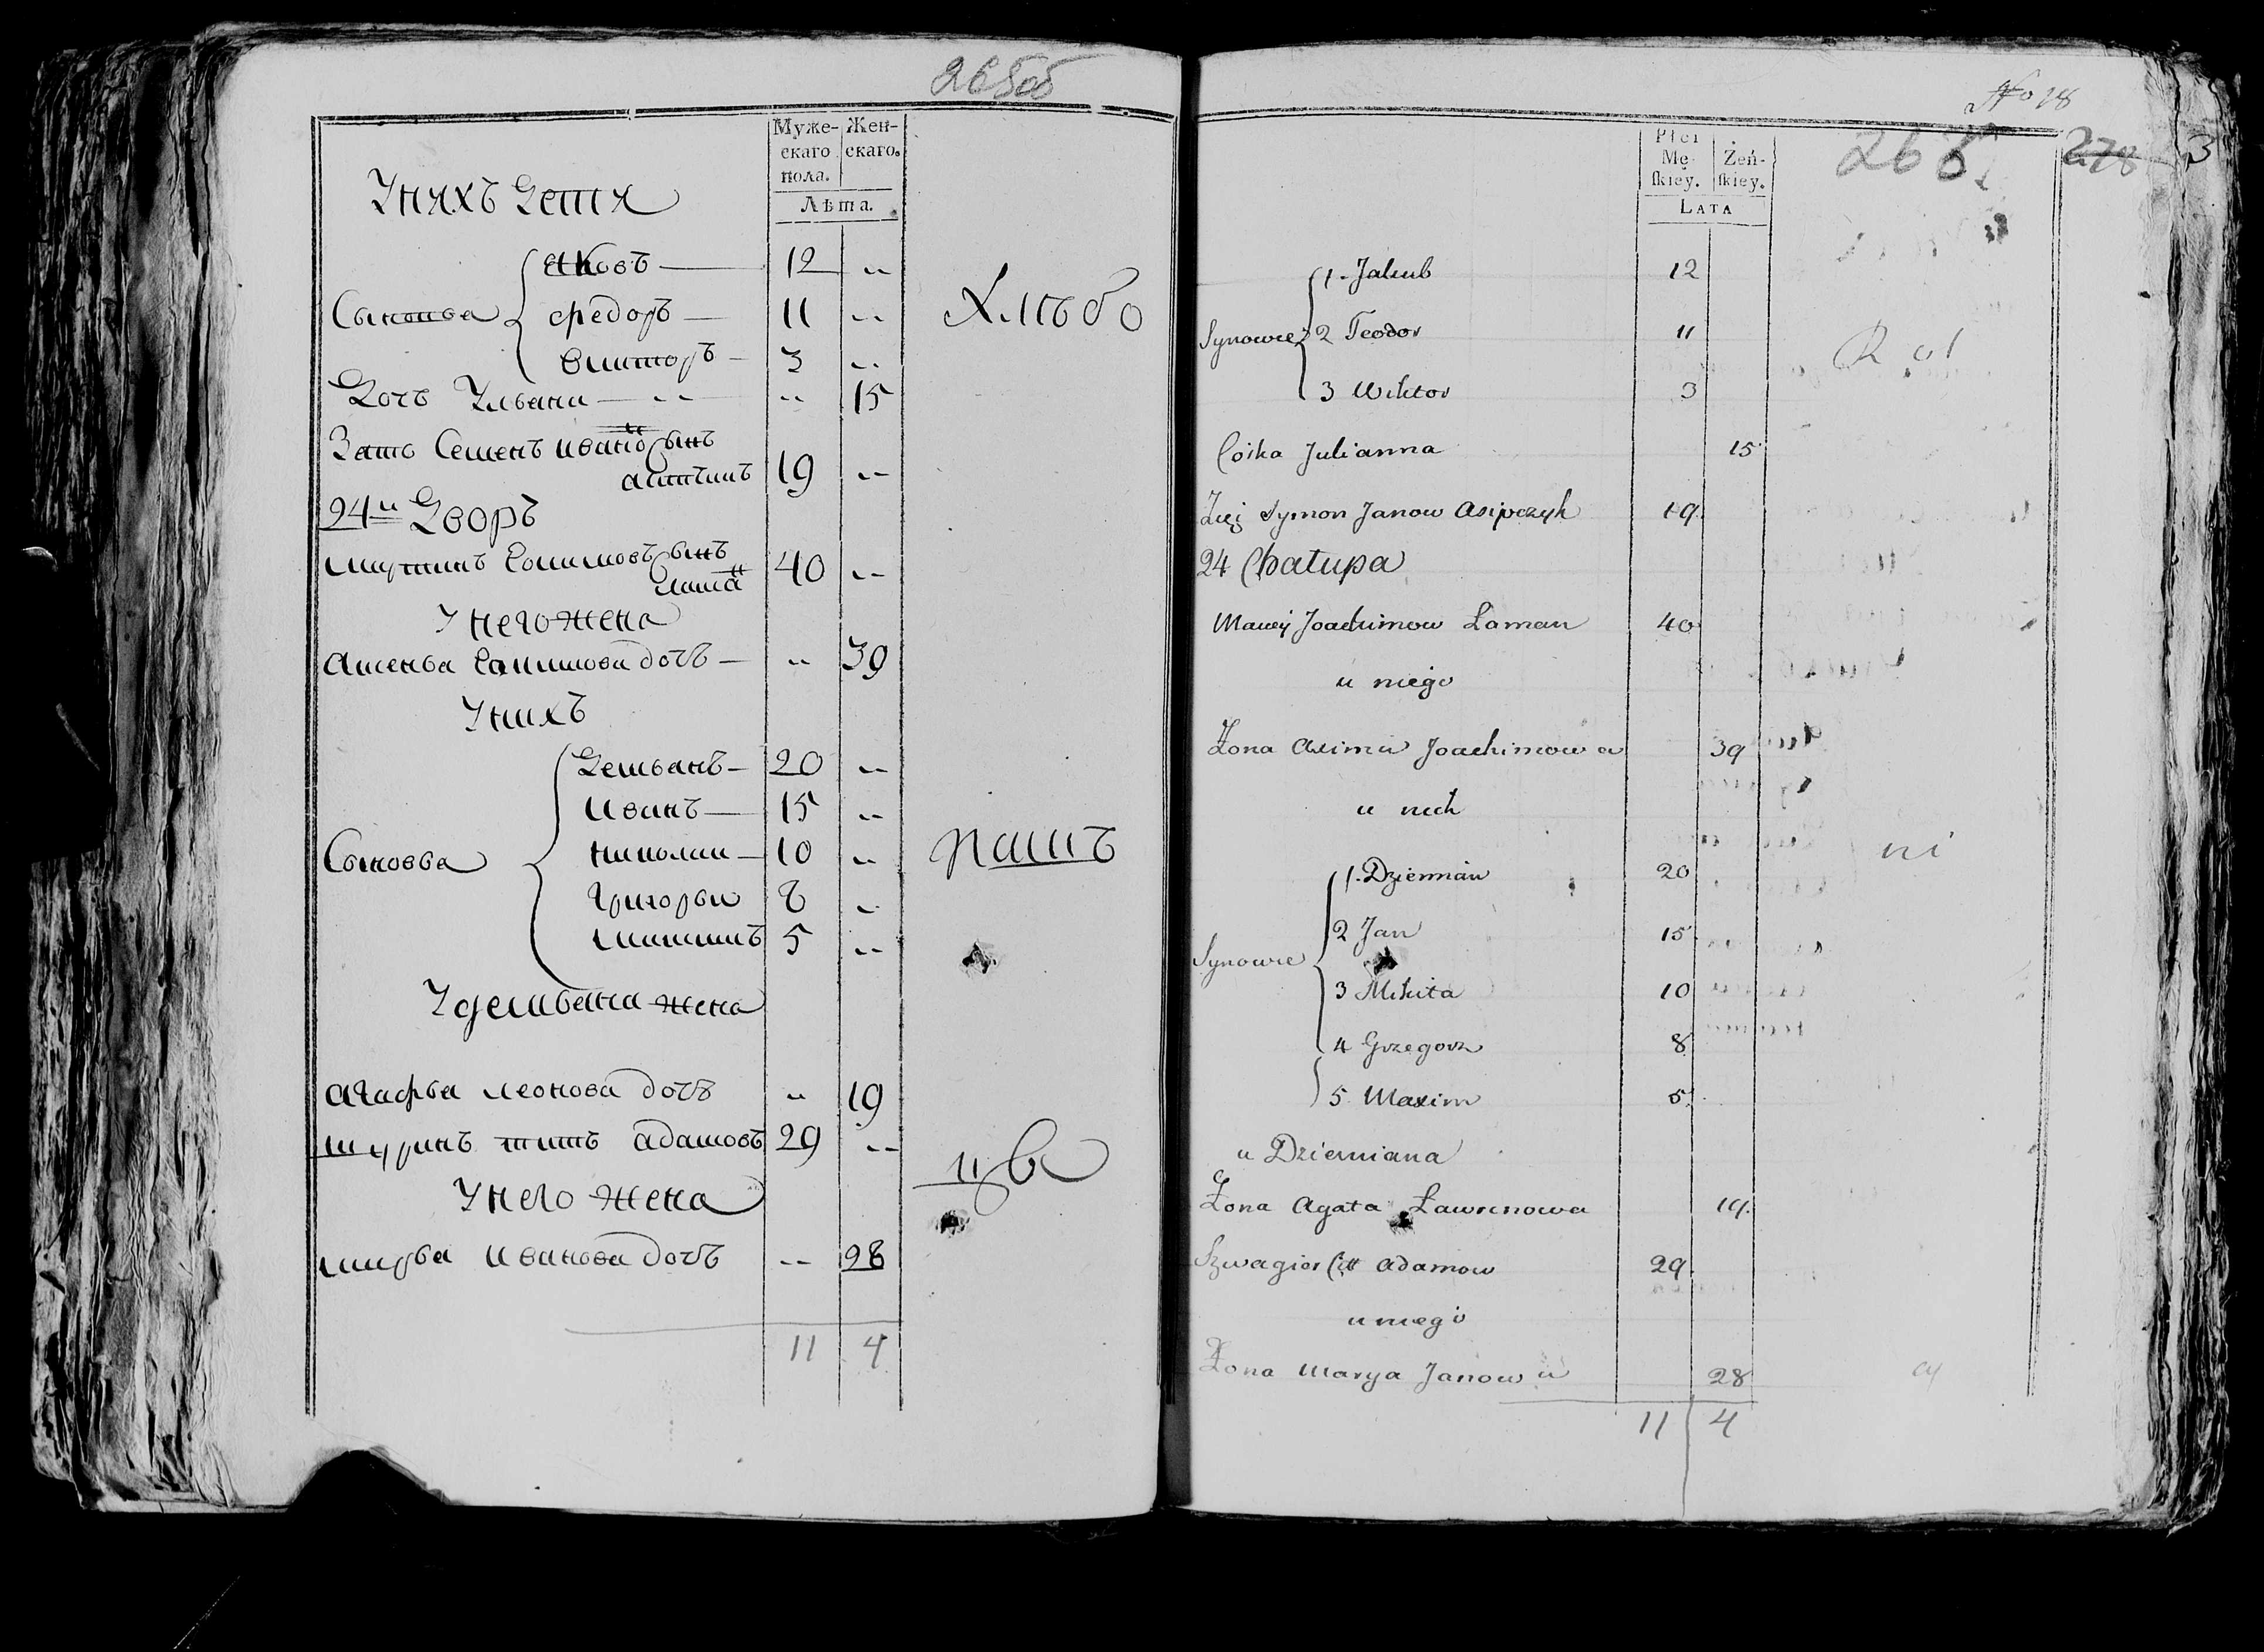 265об
Муже-
скаго
пола.
Жен-
скаго.
Лѣта.
Унихъ Дети
Сыновья
Яковъ 12 --
Федоръ 11 --
Викторъ 3 --
Дочь Ульяна -- 15
Зять Семенъ Ивановъ сынъ 19 --
24й Дворъ
Сынъ 40 --
У него жена
Аксенья дочь -- 39
Унихъ
Сыновья
Демьянъ 20 --
Иванъ 15 --
10 --
Григорей 8 --
Максимъ 5 --
У демьяна жена
Агафья леонова дочь -- 19
шуринъ титъ адамовъ 29 --
У него жена
марья Иванова дочь -- 28
11 4
Хлѣбо
пашъ
цы
No 18
266
278
3
Płci
Mę-
skiey.
Żeń-
skiey.
LATA
Synowie
1. Jakub 12
2 Teodor 11
3 Wiktor 3
Corka Julianna 15
Zięć Symon Janow Asipczyk 19
24 Chałupa
Maciej Joachimow Laman 40
u niego
Żona Axima Joachimowa 39
u nich
Synowie
1. Dziemian 20
2 Jan 15
3 Mikita 10
4 Grzegorz 8
5 Maxim 5
u Dziemiana
Żona Agata Lawrenowa 19
Szwagier Cit Adamow 29
u niego
Żona Marya Janowa 28
11 4
Rol
ni
cy